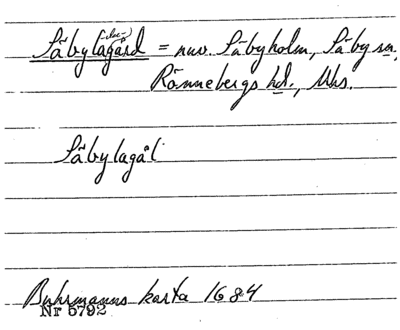 Säbylagård = nuv. Säbyholm, Säby sn,
Rönnebergs hd., Mhs.
Säbylagål
Buhrmanns karta 1684
Nr 5792